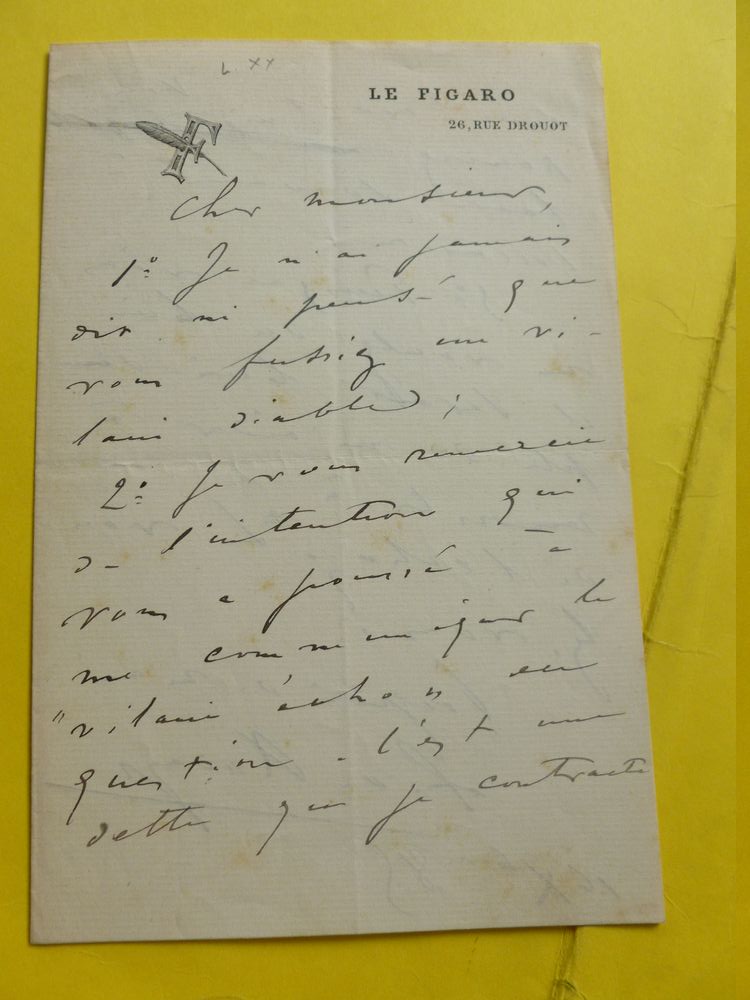 L XX
LE FIGARO
26, RUE DROUOT
F
Cher monsieur,
1º Je n'ai jamais
dit ni pensé que
vous fussiez un vi-
lain diable ;
2º Je vous remercie
de l'intention qui
vous a poussé à
me communiquer le
"vilain écho" en
question. C'est une
dette que je contracte